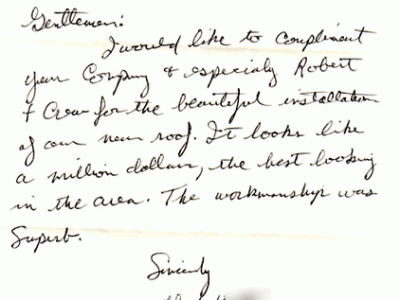 Gentlemen:
I would like to compliment
your Company & especially Robert
& Crew for the beautiful installation
of our new roof. It looks like
a million dollars, the best looking
in the area. The workmanship was
Superb.
Sincerely